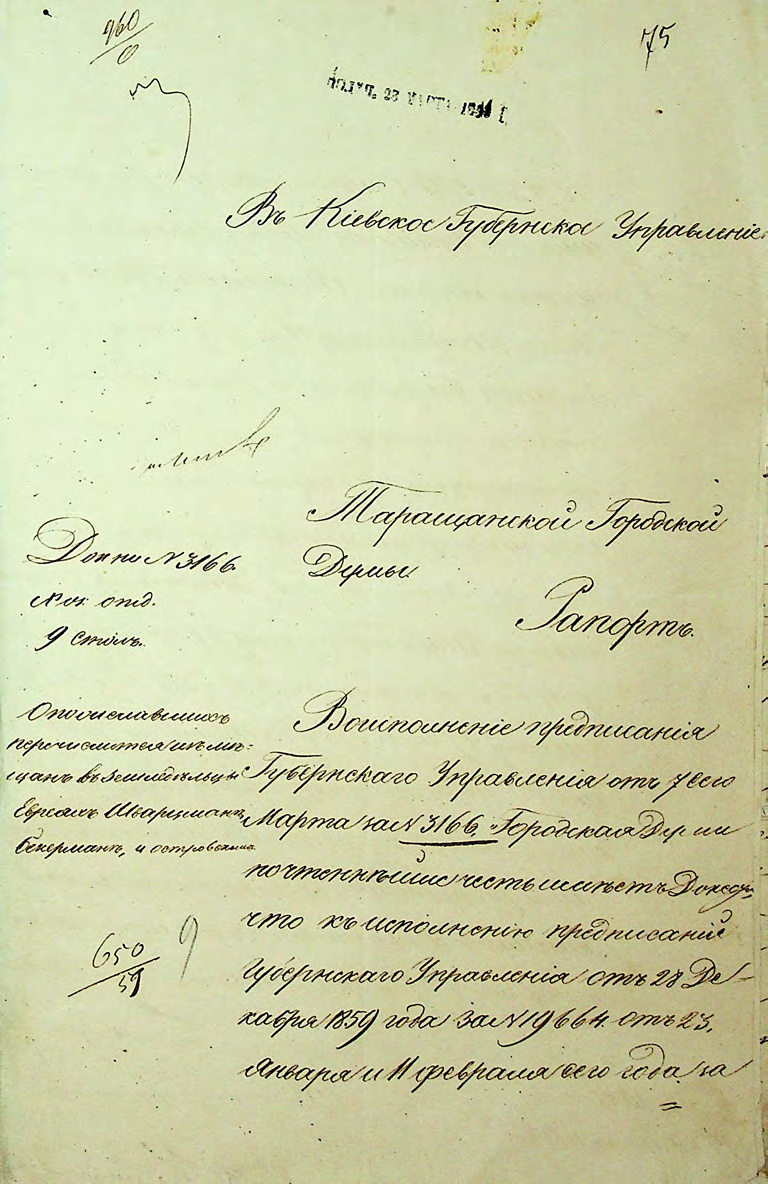 960
75
Въ Кіевское Губернское Управленіе
Таращанской Городской
Думы
Рапортъ.
До № 3166
отд.
9 столъ.
перечислится изъ мѣ-
щанъ въ земледѣльцы
Евреямъ Шварцману,
Бекерманъ, и островскому
Воисполненіе предписанія
Губернскаго Управленія отъ 7 сего
Марта за № 3166 Городская Дума
почтеннѣйше честь имѣетъ Донесть,
что къ исполненію предписаній
Губернскаго Управленія отъ 28 Де-
кабря 1859 года за № 19664. отъ 23.
Января и 11 февраля сего года за
650
59
9